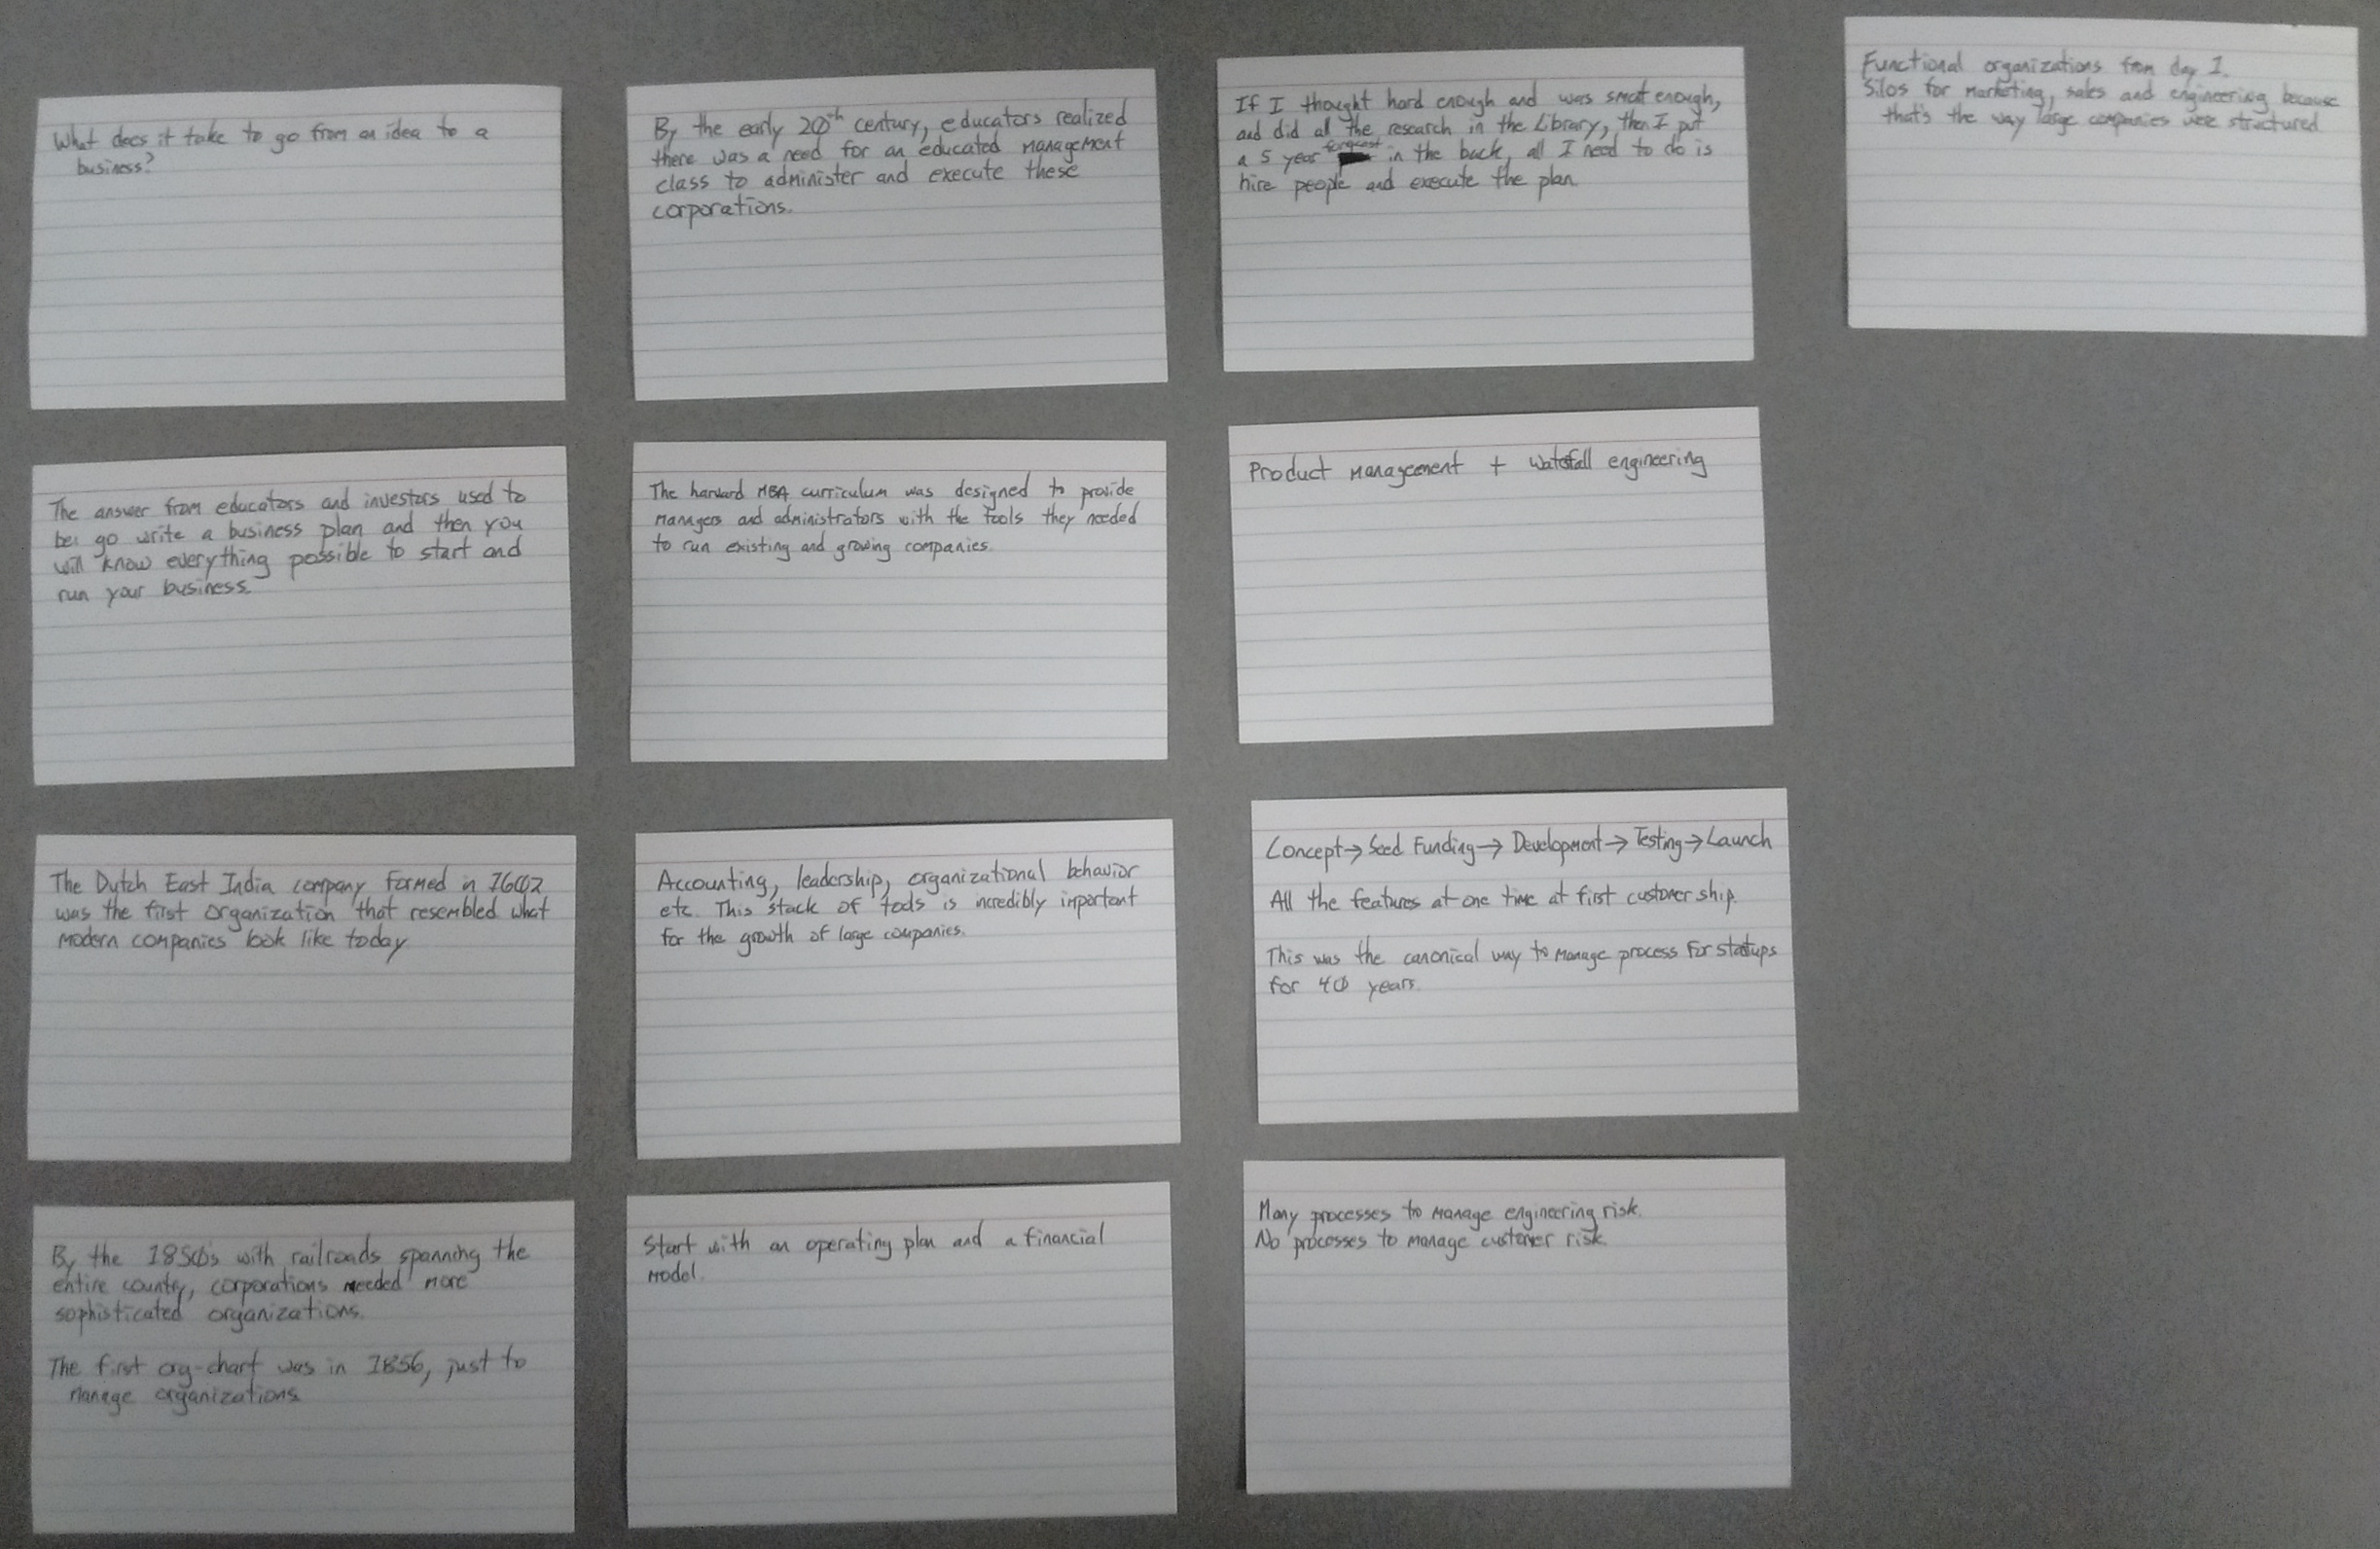 What does it take to go from an idea to a
business?
The answer from educators and investors used to
be: go write a business plan and then you
will know everything possible to start and
run your business.
The Dutch East India company formed in 1602
was the first organization that resembled what
modern companies look like today
By the 1850's with railroads spanning the
entire country, corporations needed more
sophisticated organizations.
The first org-chart was in 1856, just to
manage organizations
By the early 20th century, educators realized
there was a need for an educated management
class to administer and execute these
corporations.
The harvard MBA curriculum was designed to provide
managers and administrators with the tools they needed
to run existing and growing companies.
Accounting, leadership, organizational behavior
etc. This stack of tools is incredibly important
for the growth of large companies.
Start with an operating plan and a financial
model.
If I thought hard enough and was smart enough,
and did all the research in the Library, then I put
a 5 year forecast in the back, all I need to do is
hire people and execute the plan.
Product management + waterfall engineering
Concept→Seed Funding→Development→Testing→Launch
All the features at one time at first customer ship.
This was the canonical way to manage process for startups
for 40 years.
Many processes to manage engineering risk.
No processes to manage customer risk.
Functional organizations from day 1.
Silos for marketing, sales and engineering because
that's the way large companies were structured